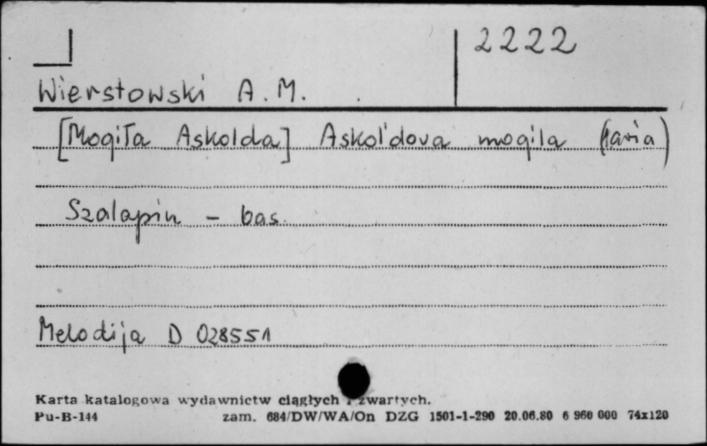 2222
Wierstowski A.M.
[Mogiła Askolda] Askol'dova mogila (aria)
Szalapin - bas.
Melodija D 028551
Karta katalogowa wydawnictw ciągłych i zwartych.
Pu-B-144 zam. 684/DW/WA/On DZG 1501-1-290 20.06.80 6 960 000 74x120